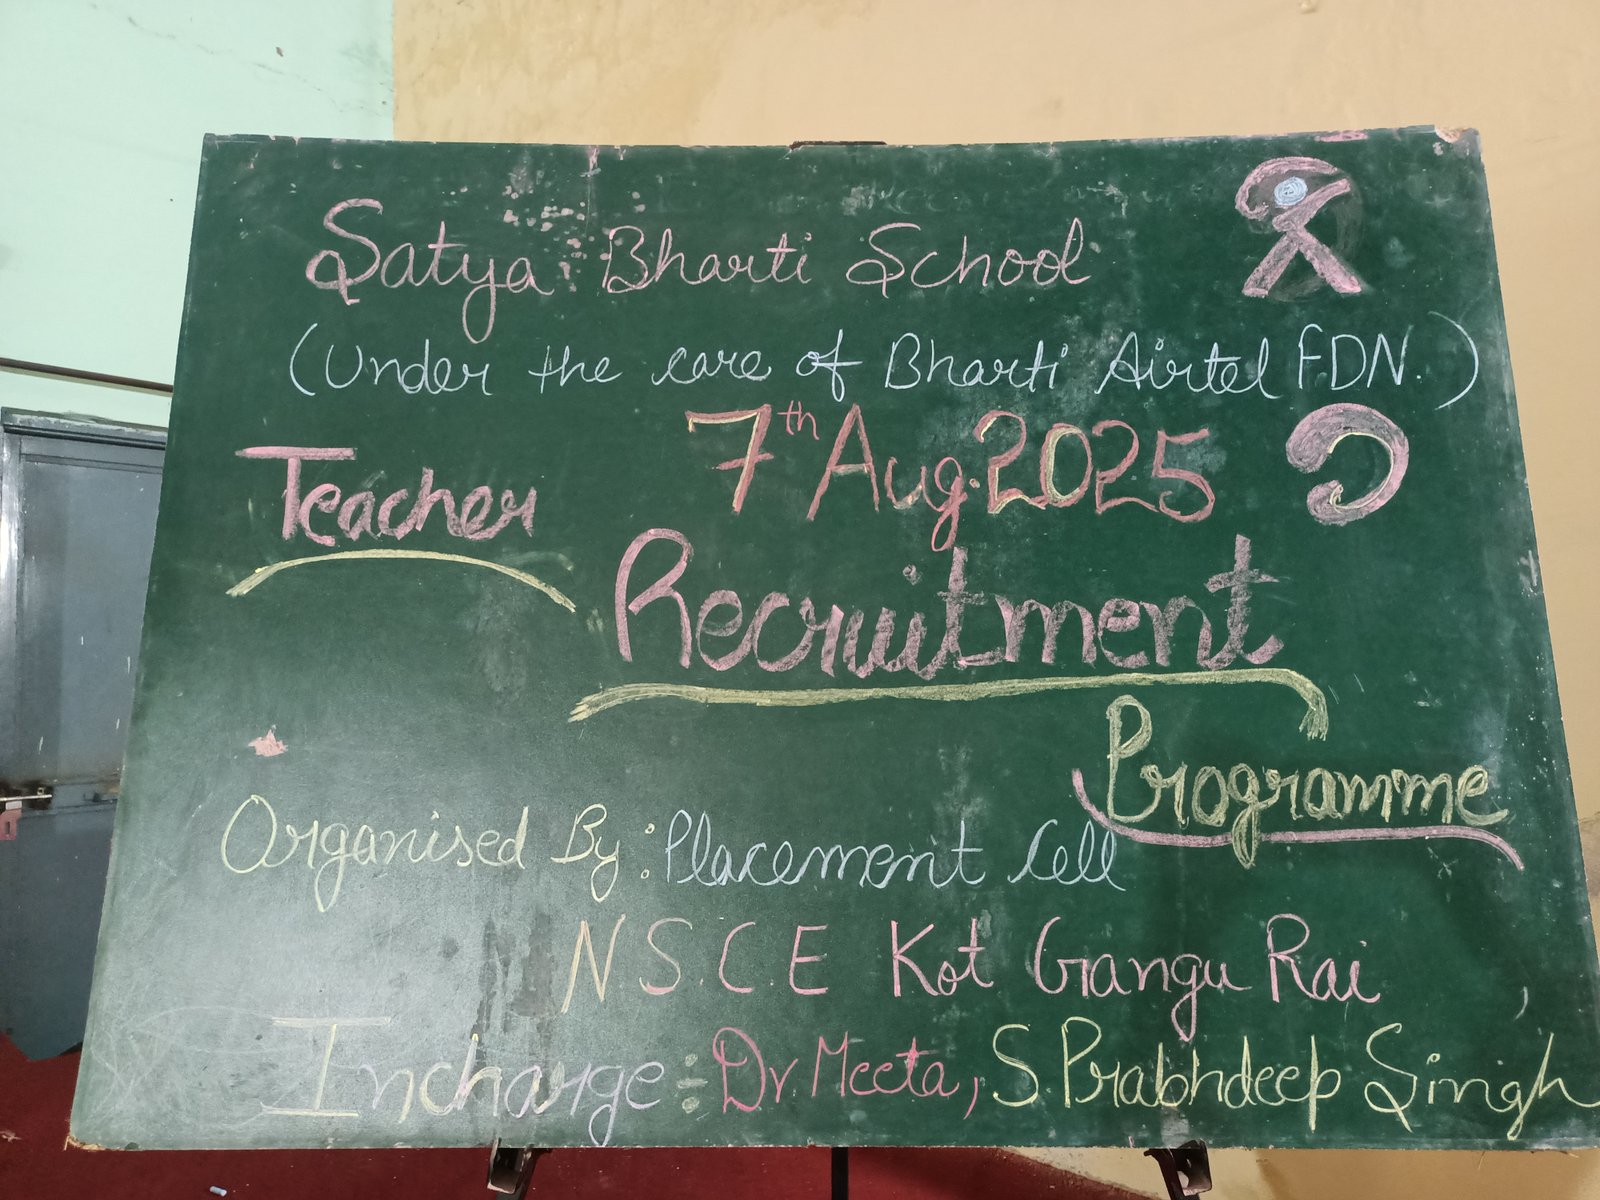 Satya Bharti School
(Under the care of Bharti Airtel FDN.)
7th Aug. 2025
Teacher
Recruitment
Programme
Organised By : Placement Cell
N.S.C.E Kot Gangu Rai
Incharge :- Dr Meeta, S. Prabhdeep Singh